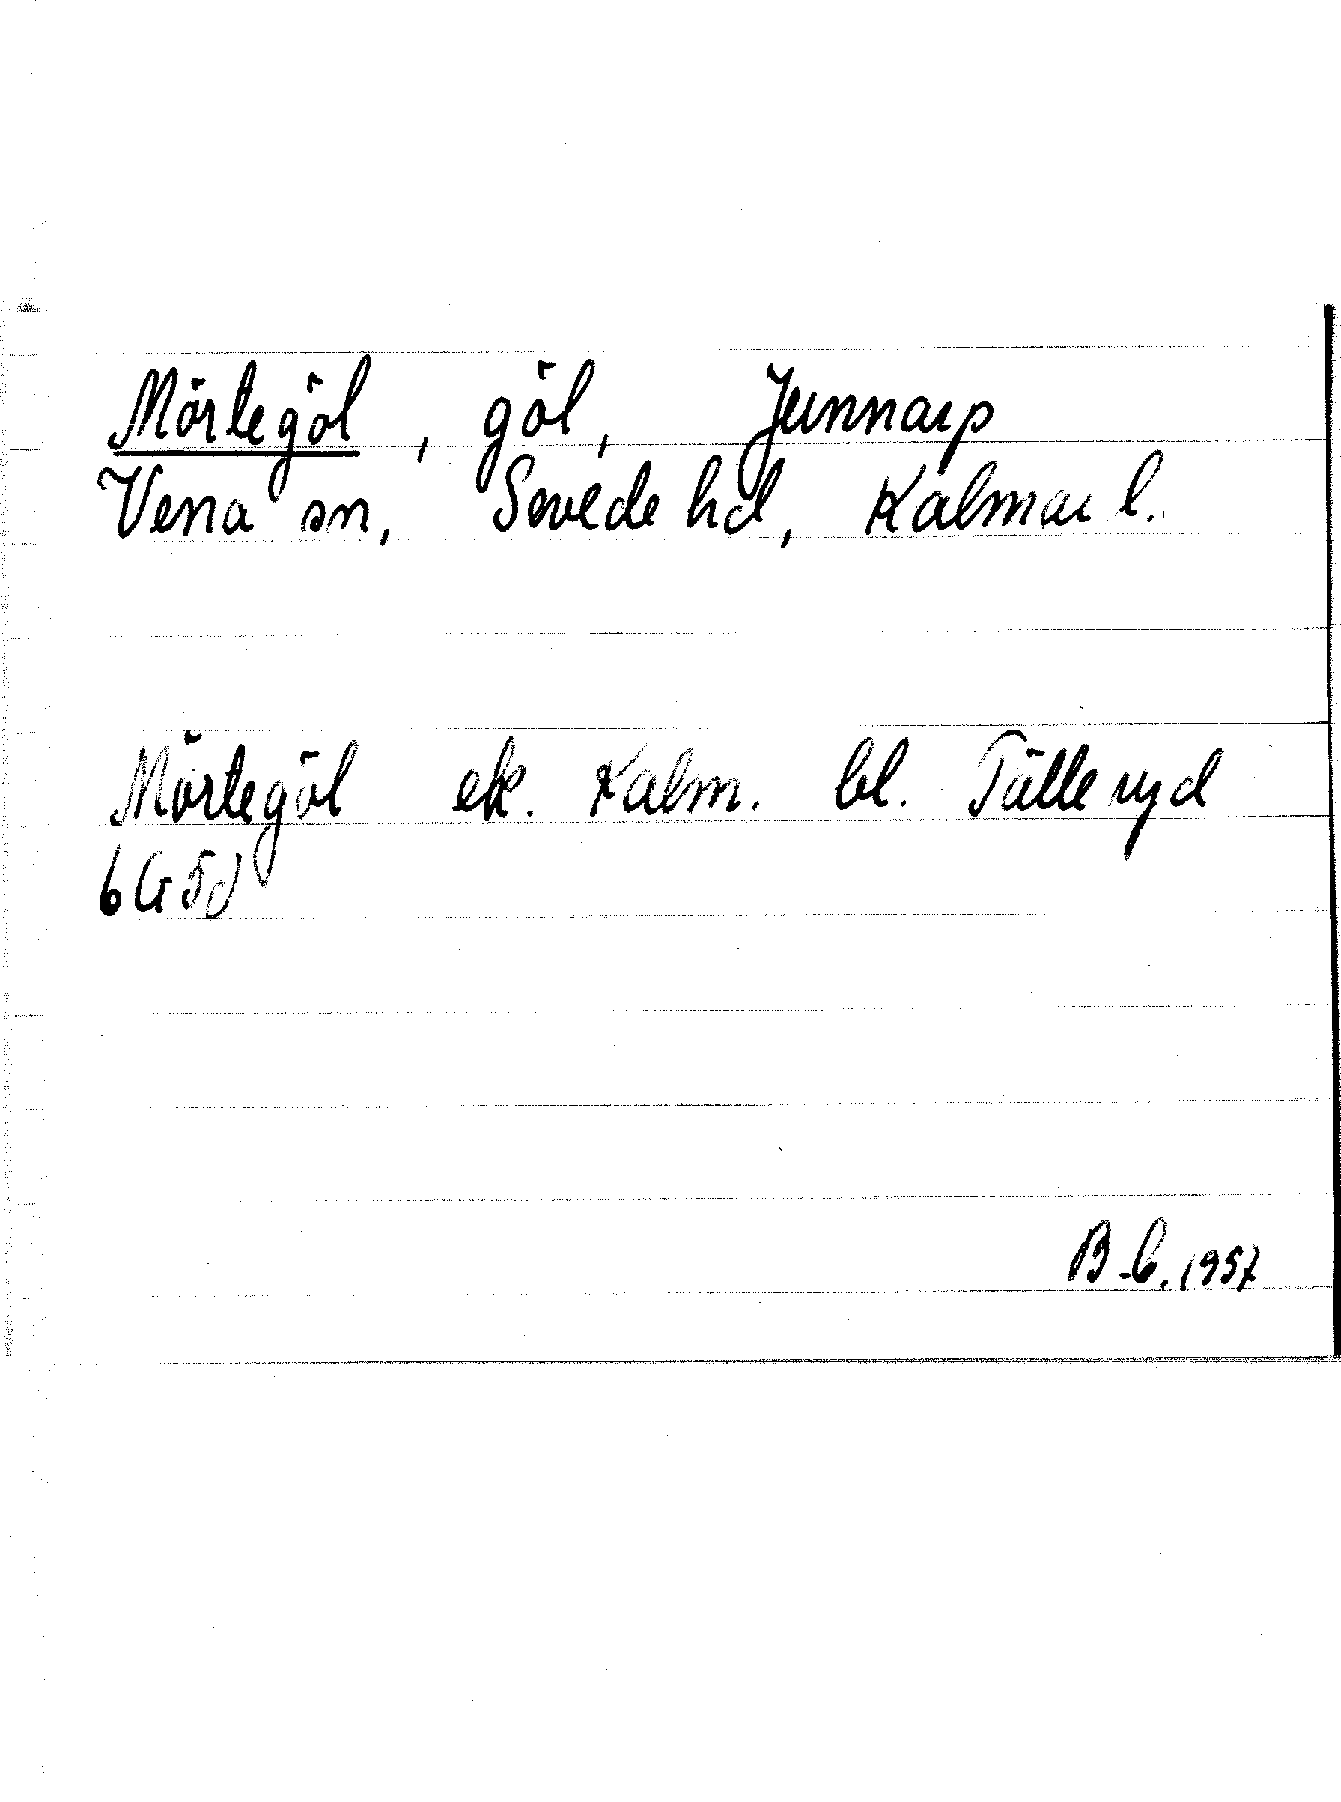 Mörtegöl, göl, Jennarp
Vena sn, Sevede hd, Kalmar l.
Mörtegöl ek. Kalm. bl. Tälleryd
6G5d
B-C. 1957